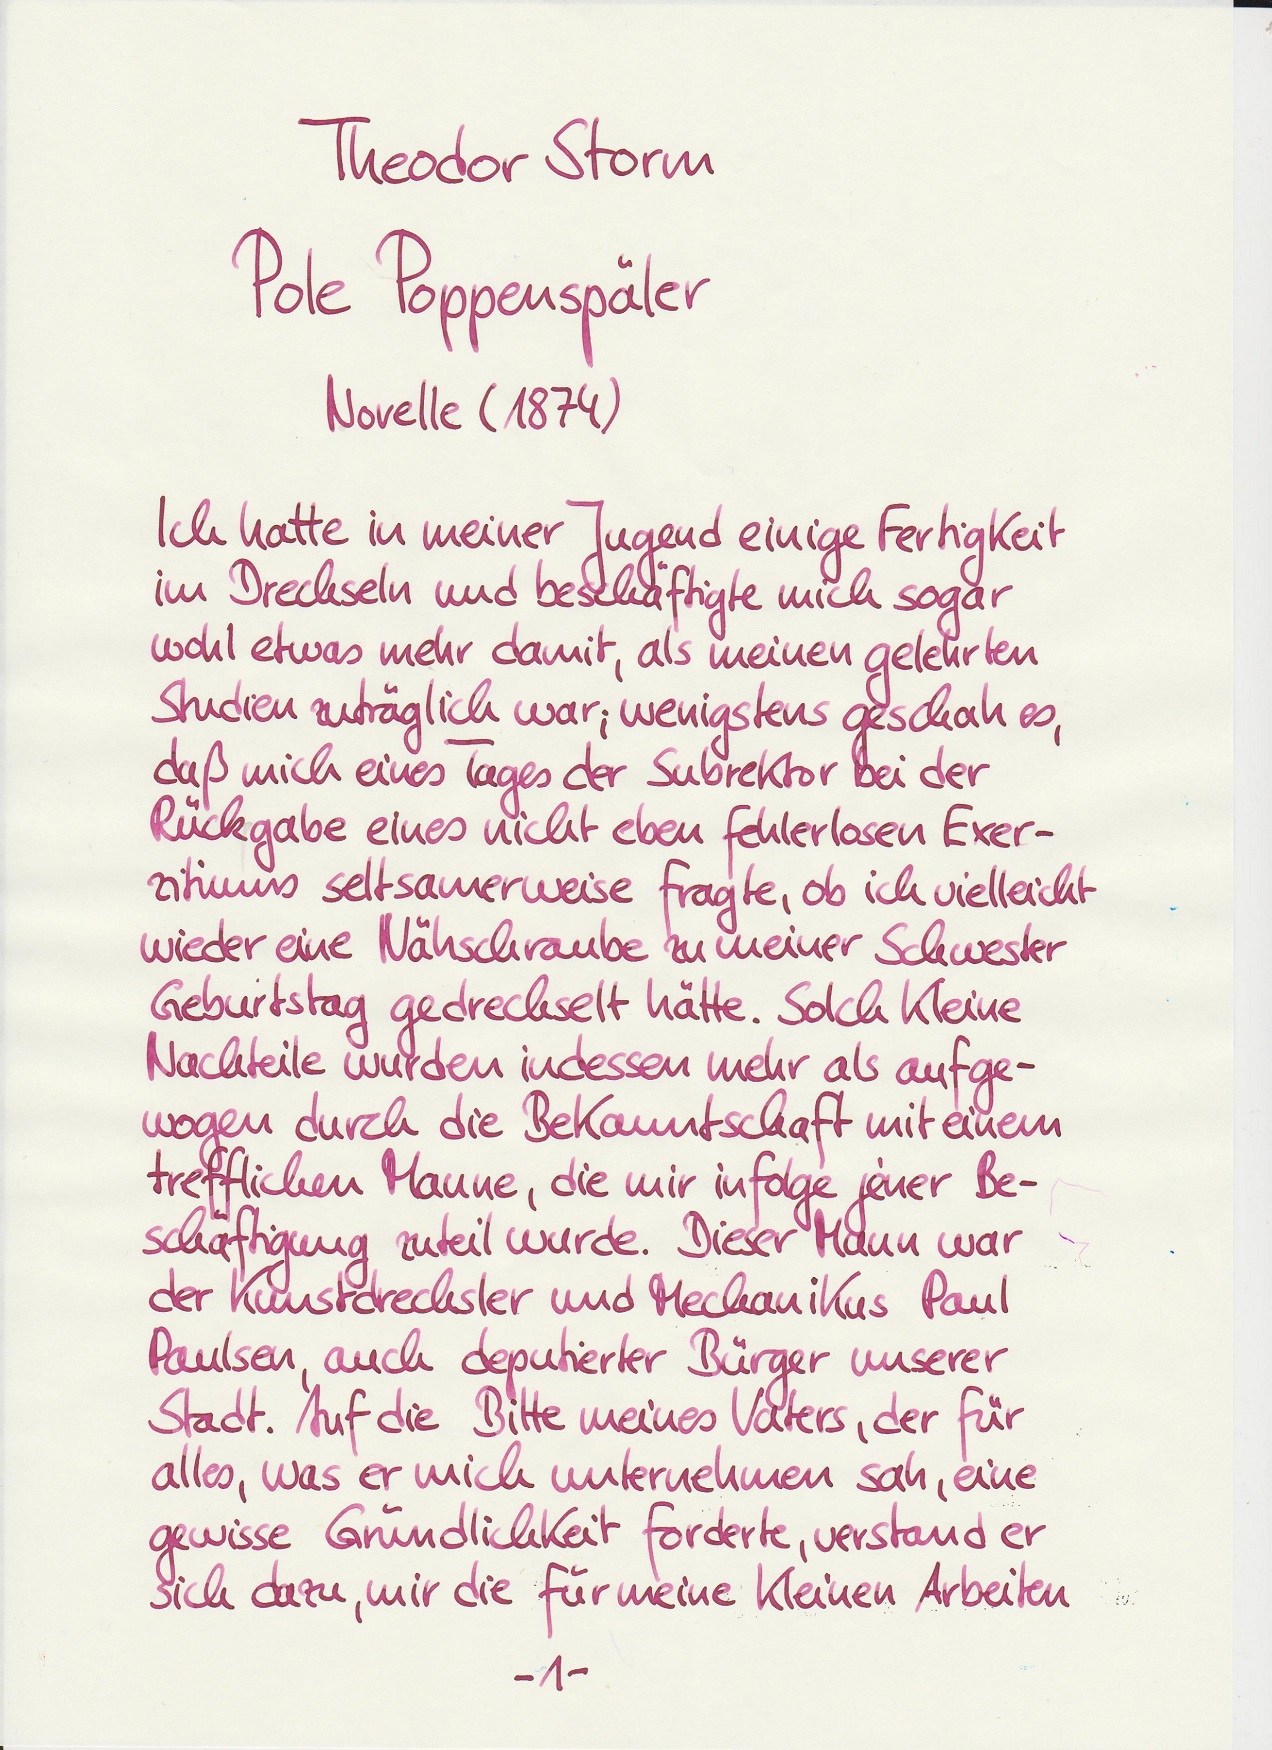 Theodor Storm
Pole Poppenspäler
Novelle (1874)
Ich hatte in meiner Jugend einige Fertigkeit
im Drechseln und beschäftigte mich sogar
wohl etwas mehr damit, als meinen gelehrten
Studien zuträglich war; wenigstens geschah es,
daß mich eines Tages der Subrektor bei der
Rückgabe eines nicht eben fehlerlosen Exer-
zitiums seltsamerweise fragte, ob ich vielleicht
wieder eine Nähschraube zu meiner Schwester
Geburtstag gedrechselt hätte. Solch kleine
Nachteile wurden indessen mehr als aufge-
wogen durch die Bekanntschaft mit einem
trefflichen Manne, die mir infolge jener Be-
schäftigung zuteil wurde. Dieser Mann war
der Kunstdrechsler und Mechanikus Paul
Paulsen, auch deputierter Bürger unserer
Stadt. Auf die Bitte meines Vaters, der für
alles, was er mich unternehmen sah, eine
gewisse Gründlichkeit forderte, verstand er
sich dazu, mir die für meine kleinen Arbeiten
-1-